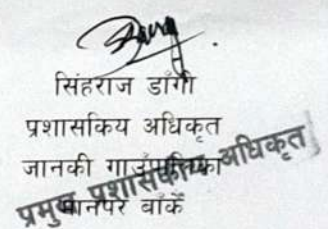 सिंहराज डाँगी
प्रशासकिय अधिकृत
जानकी गाउँपालिका
प्रमुख प्रशासकीय अधिकृत
बाँके